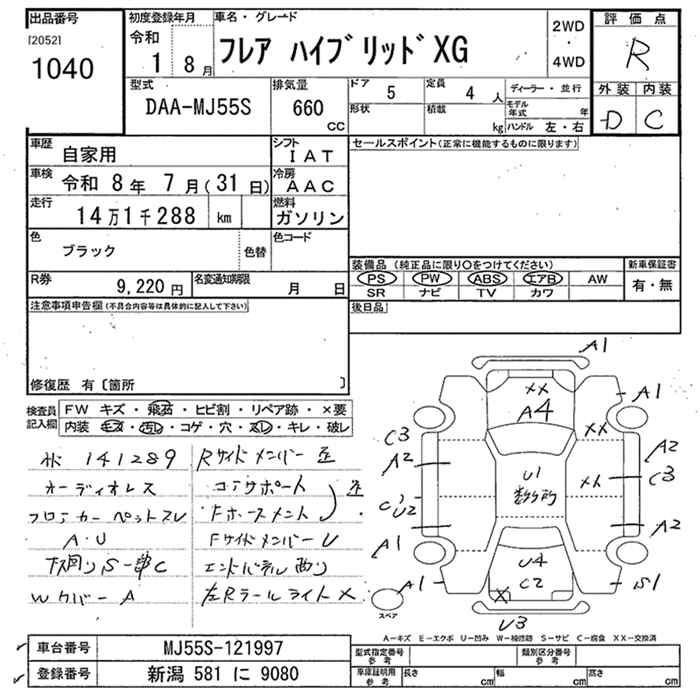 出品番号
[2052]
1040
初度登録年月
令和
1 8月
車名・グレード
フレア ハイブリッドXG
2WD
・
4WD
評価点
R
外装 内装
D C
型式
DAA-MJ55S
排気量
660
CC
ドア 5
定員 4 人
形状
積載 kg
ディーラー・並行
モデル年式 年
ハンドル 左・右
車歴 自家用
シフト IAT
車検 令和 8年 7月(31日)
冷房 AAC
走行 14万1千288 km
燃料 ガソリン
色 ブラック
色替
色コード
R券 9,220円
名変通知期限 月 日
セールスポイント(正常に機能するものに限ります)
装備品(純正品に限り○をつけてください)
PS PW ABS エアB AW
SR ナビ TV カワ
新車保証書
有・無
後日品
注意事項申告欄(不具合内容等は具体的に記入して下さい)
修復歴 有〔箇所 〕
検査員記入欄
FW キズ・飛石・ヒビ割・リペア跡・×要
内装 キズ・汚れ・コゲ・穴・スレ・キレ・破レ
141289
オーディオレス
フロアカーペットスレ
A・U
下廻りS一部C
WカバーA
Rサイドメンバー歪
コアサポート
Fホースメント
歪
FサイドメンバーU
エンドパネル凹り
左Rテールライト×
A1
××
A4
A1
C3
A2
××
A2
C3
U1
多数所
××
C1
U2
A2
A1
A1
U4
C2
×
S1
U3
スペア
A-キズ E-エクボ U-凹み W-補修跡 S-サビ C-腐食 XX-交換済
車台番号 MJ55S-121997
登録番号 新潟 581 に 9080
型式指定番号 参考
類別区分番号 参考
車庫証明用 参考
長さ cm
幅 cm
高さ cm